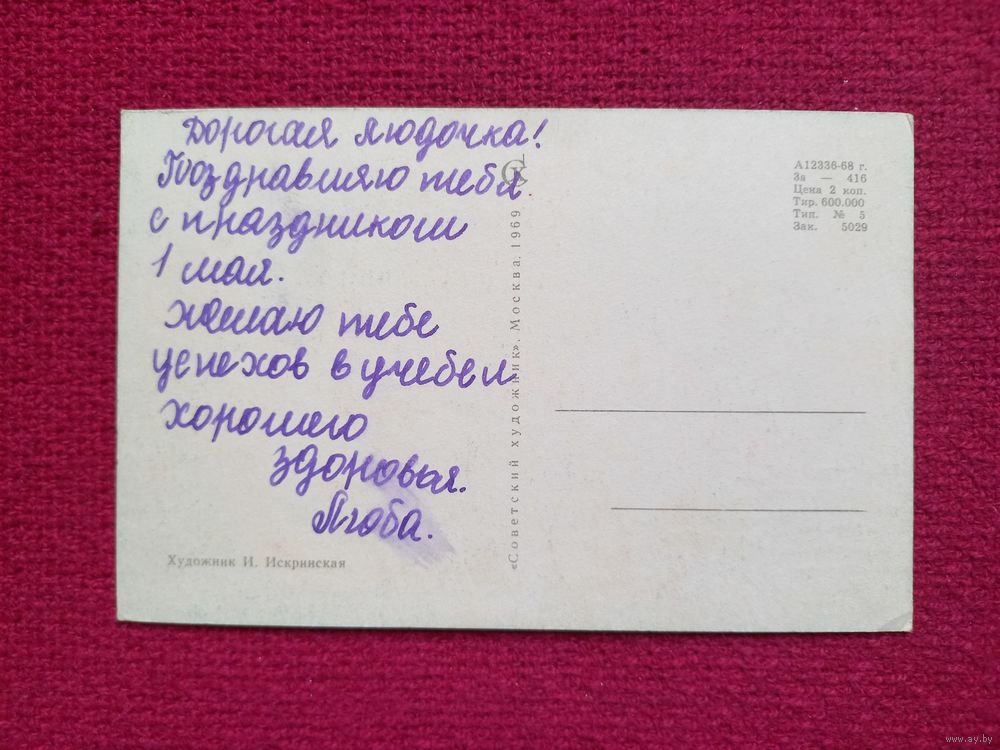 Дорогая Людочка!
Поздравляю тебя
с праздником
1 мая.
желаю тебе
успехов в учебе и
хорошего
здоровья.
Люба.
Художник И. Искринская
«Советский художник». Москва. 1969
А12336-68 г.
За — 416
Цена 2 коп.
Тир. 600.000
Тип. № 5
Зак. 5029
www.ay.by